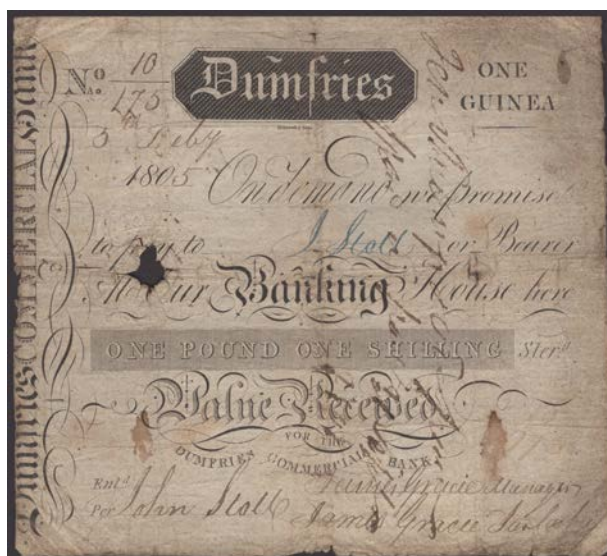 Dumfries COMMERCIAL Bank
No. 10
175
Dumfries
ONE
GUINEA
5th Feby
1805 On demand we promise
to pay to J Stott or Bearer
At Our Banking House here
ONE POUND ONE SHILLING Sterg.
Value Received
FOR THE
DUMFRIES COMMERCIAL BANK
Entd. James Gracie Manager
Per John Stott James Gracie